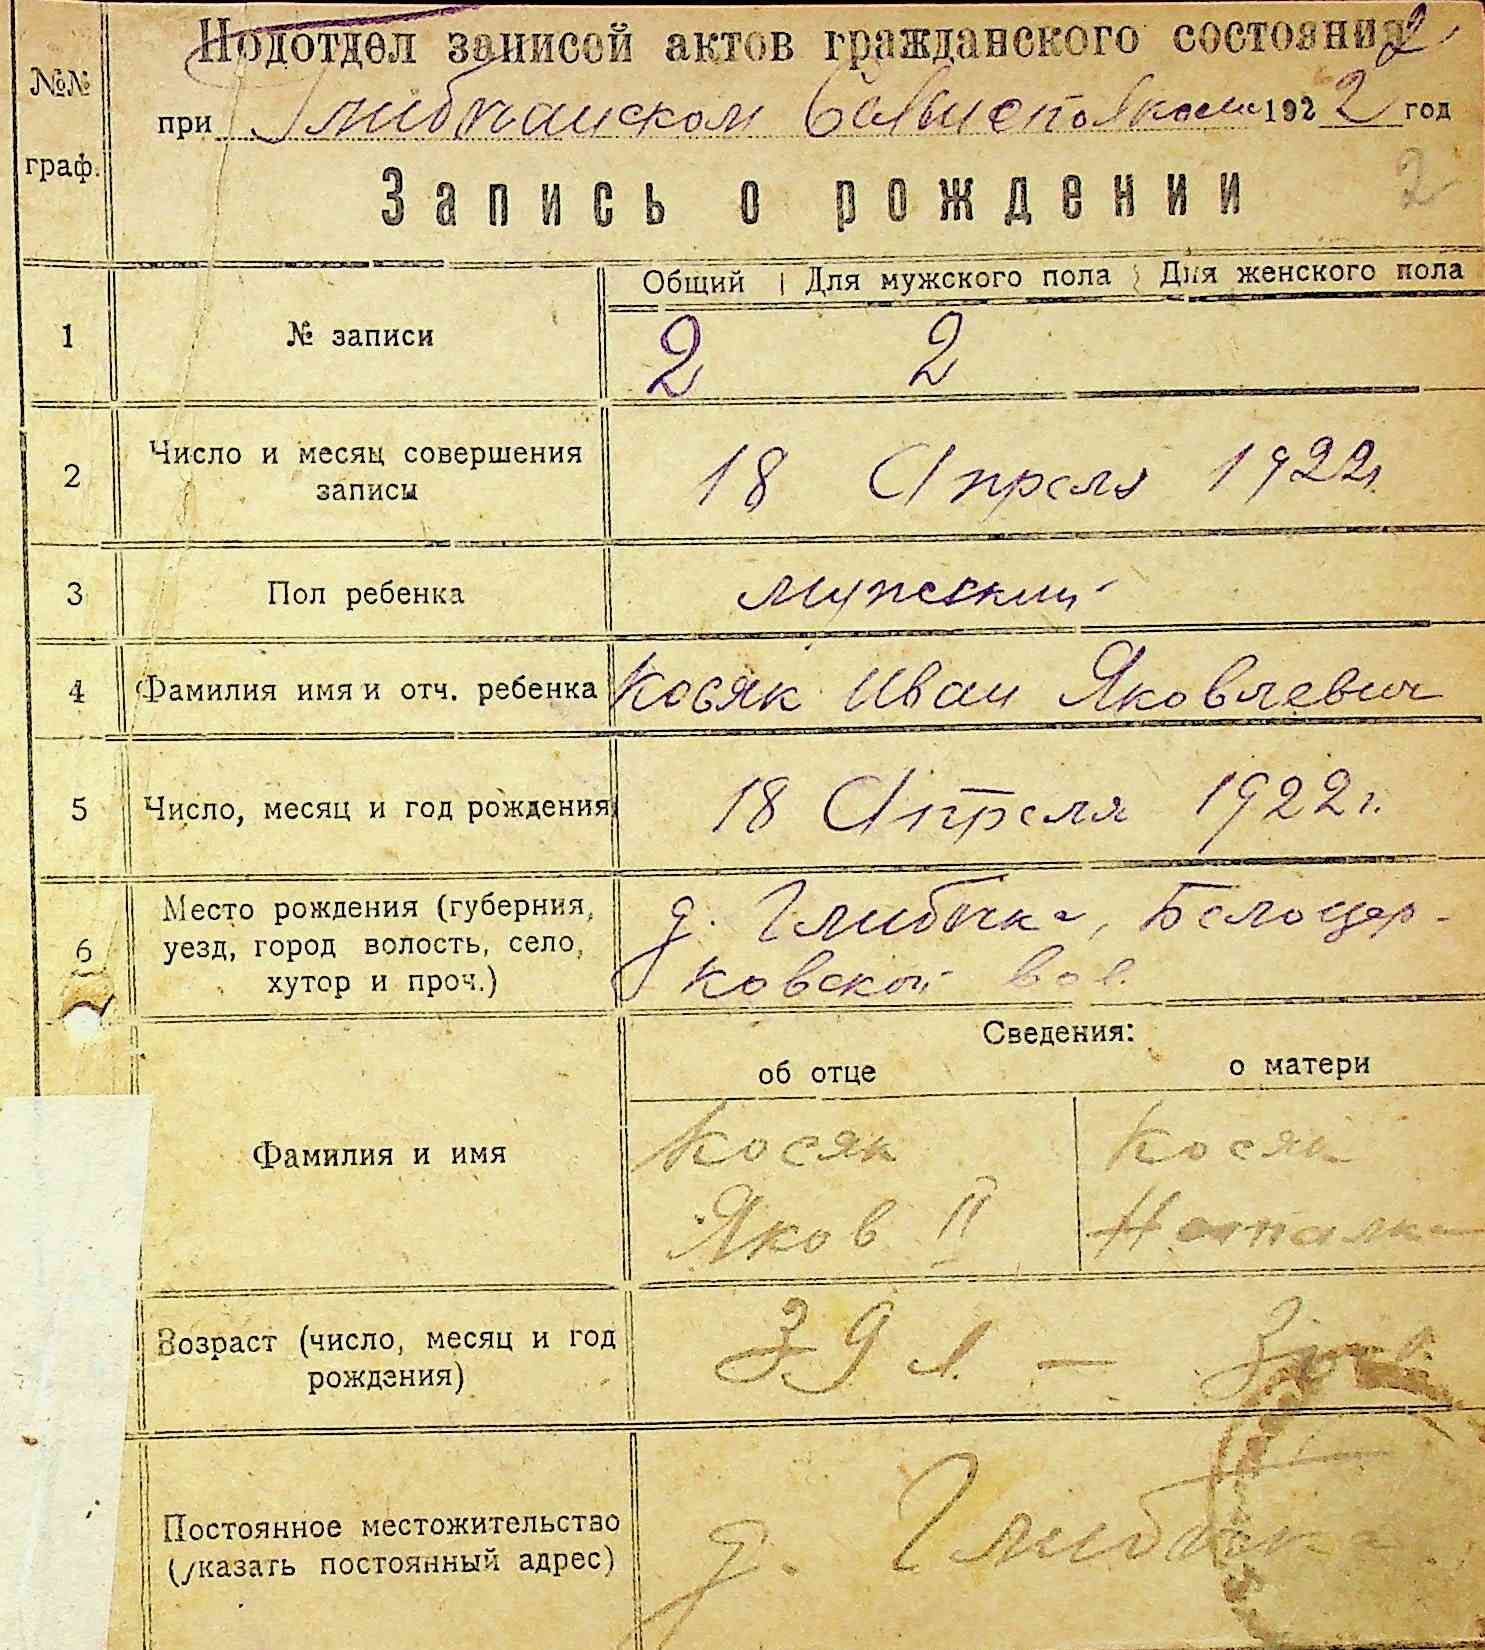 Подотдел записей актов гражданского состояния 2
№№ граф.
при Глибочанском 1922 год
Запись о рождении 2
Общий Для мужского пола Для женского пола
1 № записи 2 2
2 Число и месяц совершения записы 18 Апреля 1922г.
3 Пол ребенка мужский
4 Фамилия имя и отч. ребенка Косяк Иван Яковлевич
5 Число, месяц и год рождения 18 Апреля 1922г.
6 Место рождения (губерния, уезд, город волость, село, хутор и проч.) д. Глибочка, Белоцер-
ковской вол.
Сведения:
об отце о матери
Фамилия и имя Косяк Косяк
Яков II Наталка
Возраст (число, месяц и год рождения) 39 л. —
Постоянное местожительство (указать постоянный адрес) д. Глибочка